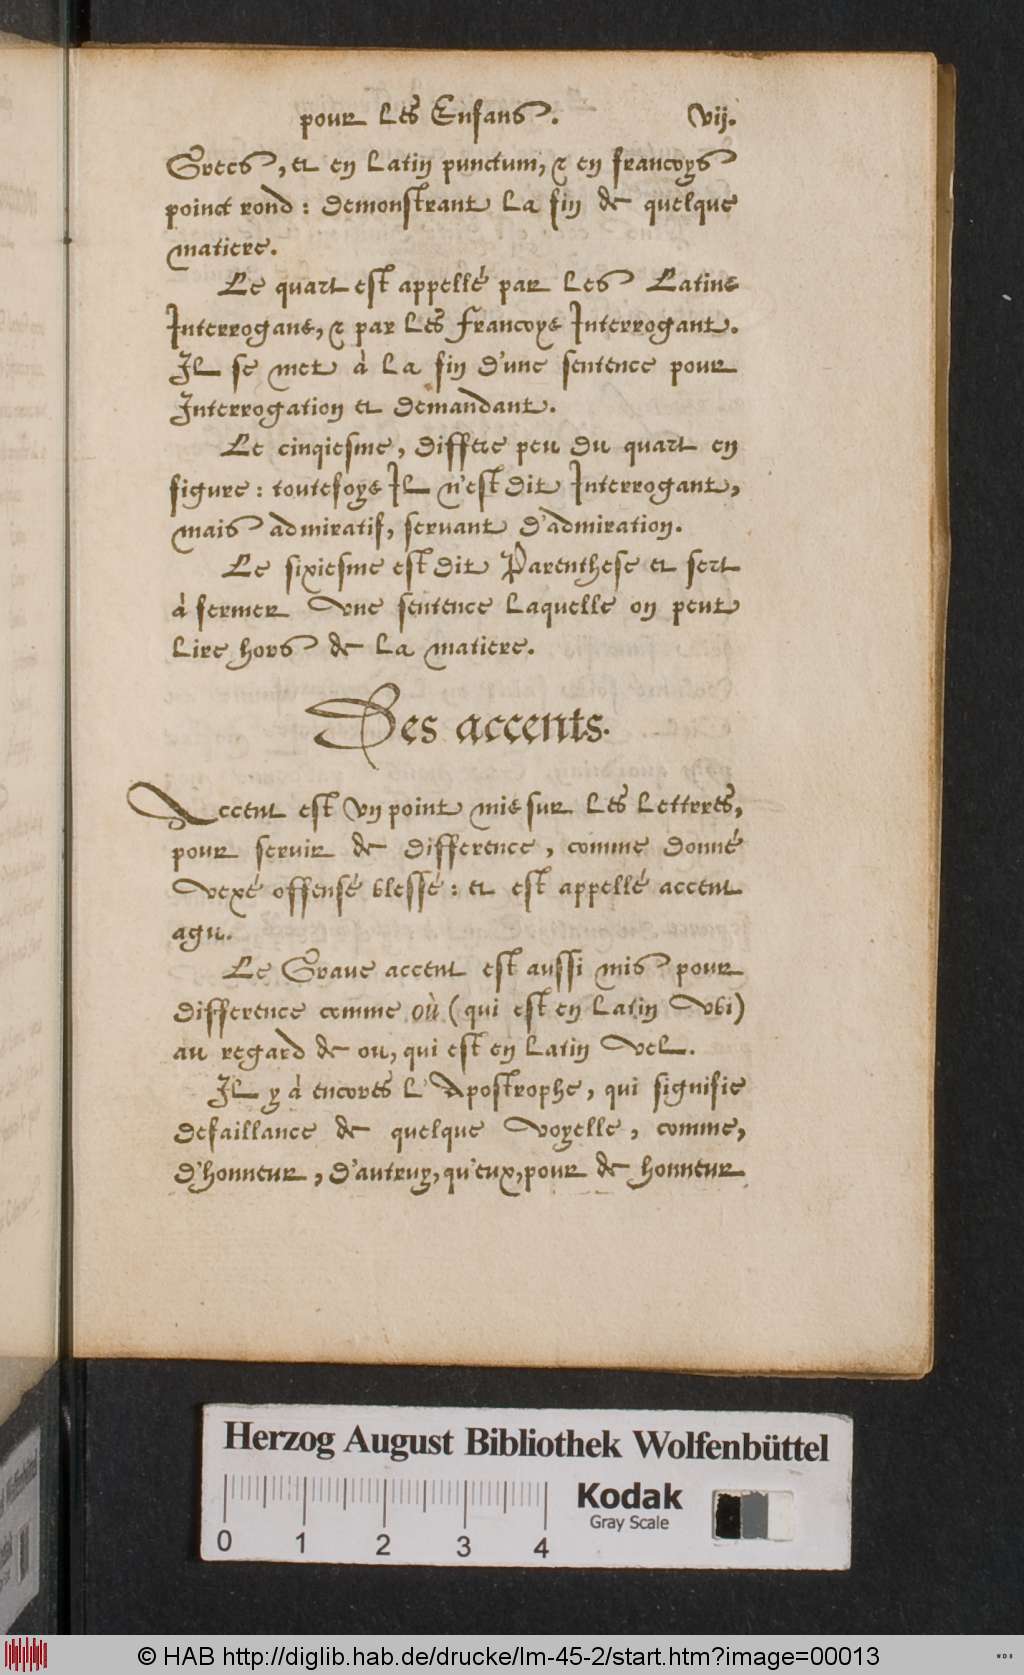 pour les Enfans. vij.
Grecs, et en latin punctum, & en francoys
poinct rond : demonstrant la fin de quelque
matiere.
Le quart est appellé par les Latins
Interrogans, & par les Francoys Interrogant.
Il se met à la fin d'une sentence pour
Interrogation et demandant.
Le cinqiesme, differe peu du quart en
figure : toutefoys Il n'est dit Interrogant,
mais admiratif, servant d'admiration.
Le sixiesme est dit Parenthese et sert
à fermer vne sentence laquelle on peut
lire hors de la matiere.
Des accents.
Accent est vn point mis sur les lettres,
pour servir de difference, comme donné
vexé offensé blessé : et est appellé accent
agu.
Le Grave accent est aussi mis pour
difference comme où (qui est en latin vbi)
au regard de ou, qui est en latin vel.
Il y à encores l'Apostrophe, qui signifie
defaillance de quelque voyelle, comme,
d'honneur, d'autruy, qu'eux, pour de honneur
Herzog August Bibliothek Wolfenbüttel
Kodak
Gray Scale
0 1 2 3 4
© HAB http://diglib.hab.de/drucke/lm-45-2/start.htm?image=00013